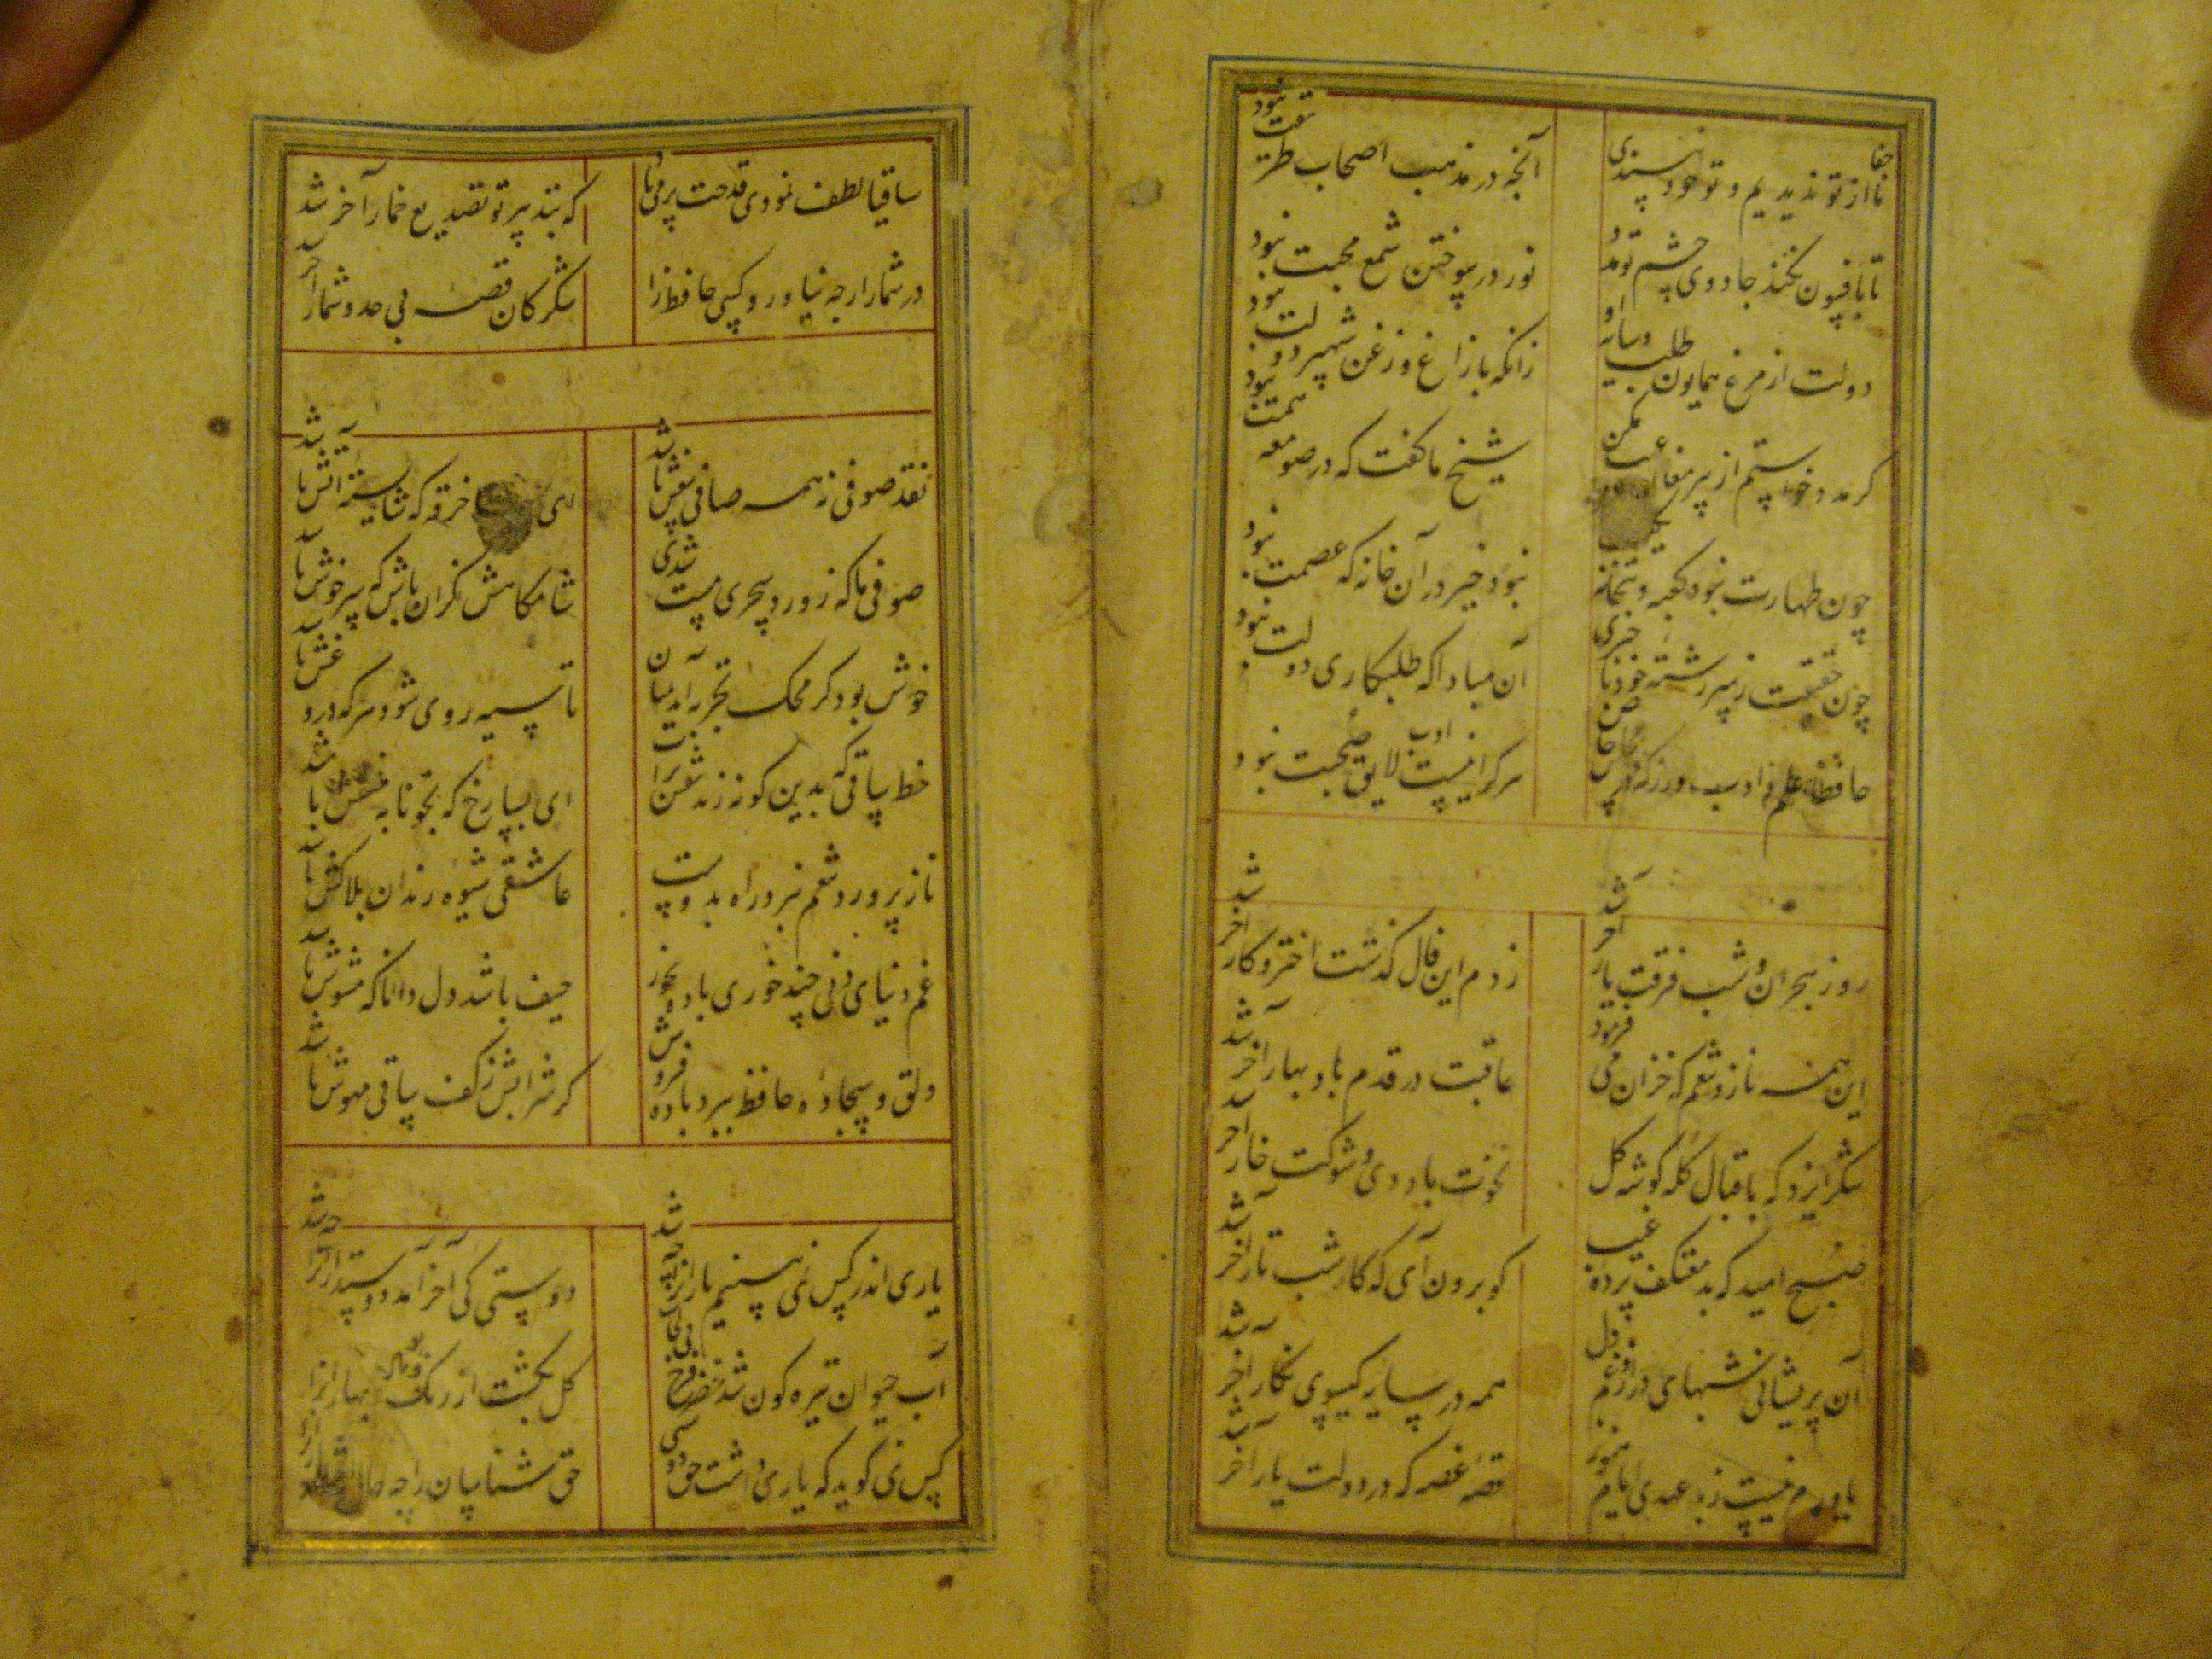 ما جفا از تو ندیدیم و تو خود نپسندی آنچه در مذهب اصحاب طریقت نبود
تا بافسون نکند جادوی چشم تو مدد نور در سوختن شمع محبت نبود
دولت از مرغ همایون طلب و سایه او زانکه با زاغ و زغن شهپر دولت نبود
کر مدد خواستم از پیر مغان عیب مکن شیخ ما کفت که در صومعه همت نبود
چون طهارت نبود کعبه و بتخانه یکیست نبود خیر در آن خانه که عصمت نبود
چون حقیقت ز سر رشته خود با خبری آن مبادا که طلبکاری دولت نبود
حافظا علم و ادب ورز که در مجلس خاص هرکرا نیست ادب لایق صحبت نبود
روز هجران و شب فرقت یار آخر شد زدم این فال کذشت اختر و کار آخر شد
این همه ناز و تنعم که خزان می فرمود عاقبت در قدم باد بهار آخر شد
شکر ایزد که باقبال کله کوشه کل نخوت باد دی و شوکت خار آخر شد
صبح امید که بد معتکف پرده غیب کو برون آی که کار شب تار آخر شد
آن پریشانی شبهای دراز و غم دل همه در سایه کیسوی نکار آخر شد
باورم نیست ز بد عهدی ایام هنوز قصه غصه که در دولت یار آخر شد
ساقیا لطف نمودی قدحت پر می باد که بتدبیر تو تصدیع خمار آخر شد
در شمار ار چه نیاورد کسی حافظ را شکر کان قصه بی حد و شمار آخر شد
نقد صوفی نه همه صافی بیغش باشد ای خرقه که شایسته آتش باشد
صوفی ما که ز ورد سحری مست شدی شامکاهش نکران باش که سرخوش باشد
خوش بود کر محک تجربه آید بمیان تا سیه روی شود هرکه درو غش باشد
خط ساقی که بدین کونه زند نقش بر آب ای بسا رخ که بخونابه منقش باشد
ناز پرورد تنعم نبرد راه بدوست عاشقی شیوه رندان بلاکش باشد
غم دنیای دنی چند خوری باده بخور حیف باشد دل دانا که مشوش باشد
دلق و سجاده حافظ ببرد باده فروش کر شرابش ز کف ساقی مهوش باشد
یاری اندر کس نمی بینیم یارانرا چه شد دوستی کی آخر آمد دوستدارانرا چه شد
آب حیوان تیره کون شد خضر فرخ پی کجاست کل بکشت از رنک خود باد بهارانرا
کس نمی کوید که یاری داشت حق دوستی حق شناسان را چه حال